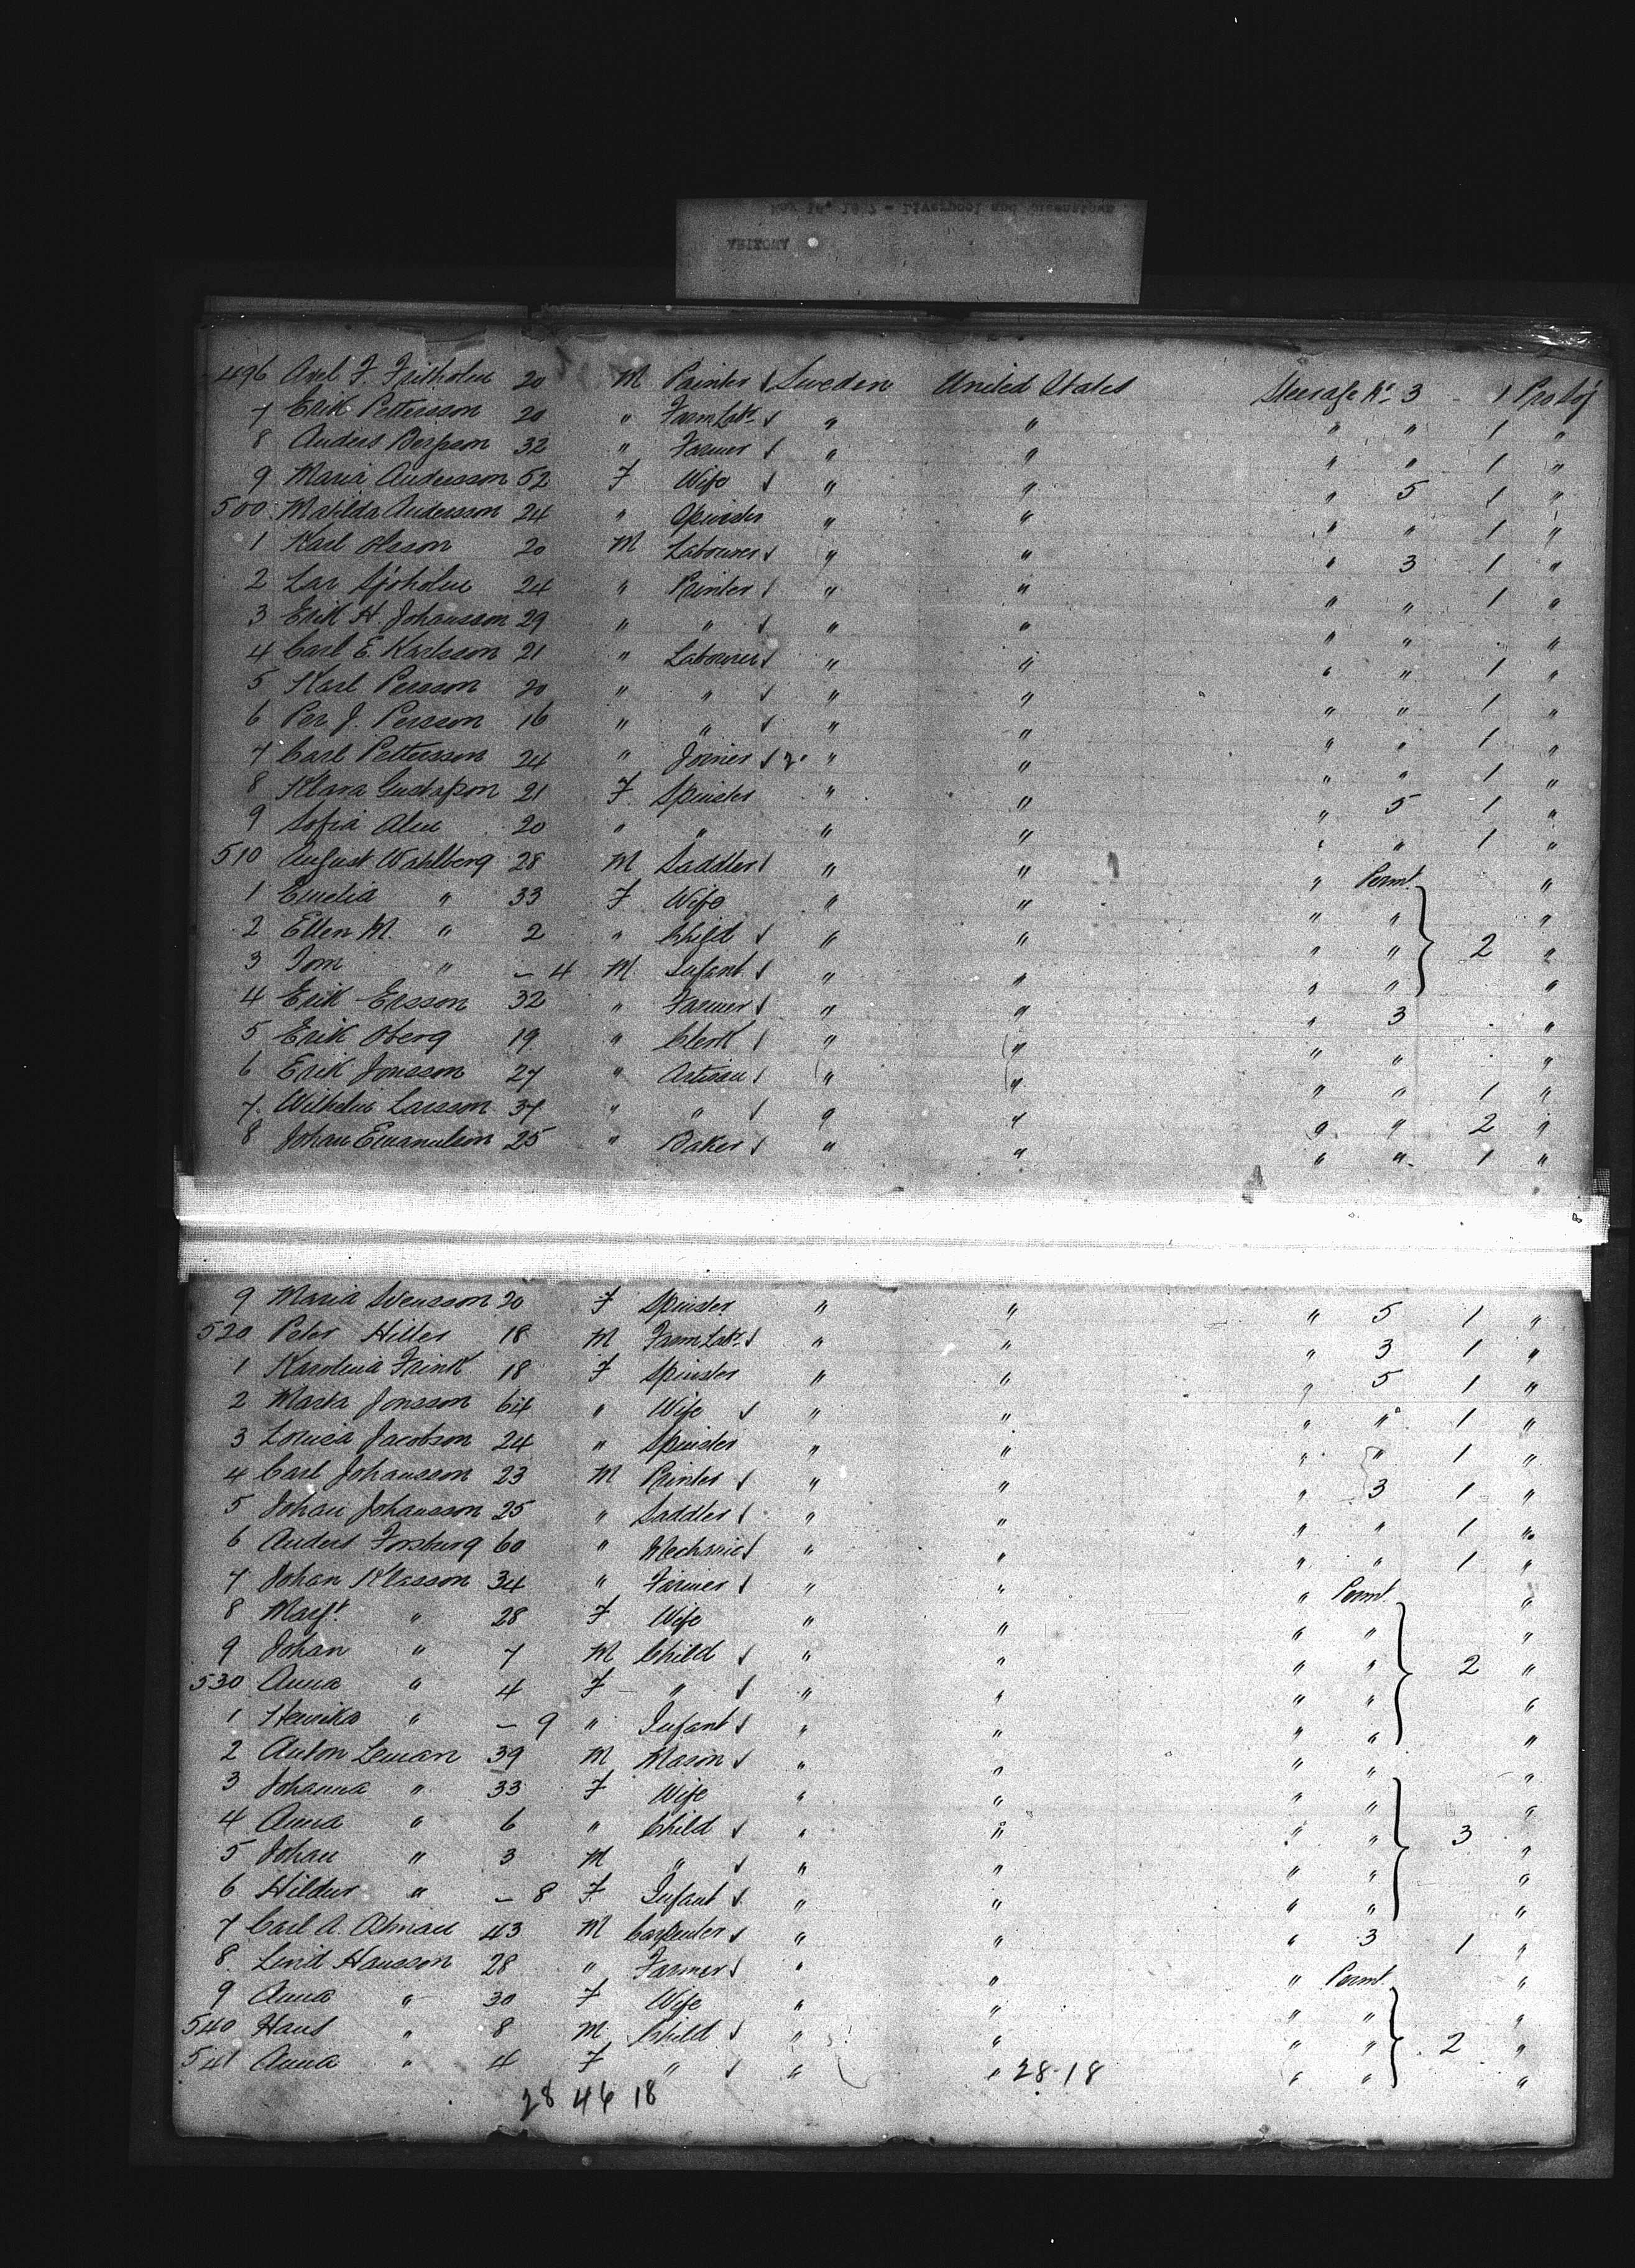 496 Axel F. Fritholm 20 M Painter Sweden United States Steerage No 3 - 1 Pro Soj
7 Erik Pettersson 20 " Farm Labr " " " " 1 "
8 Anders 32 " Farmer " " " " 1 "
9 Maria Andersson 52 F Wife " " " 5 1 "
500 Matilda Andersson 24 " Spinster " " " " 1 "
1 Karl Olsson 20 M Labourer " " " 3 1 "
2 Lar Sjoholm 24 " Printer " " " " 1 "
3 Erik H. Johansson 29 " " " " " " "
4 Carl E. Karlsson 21 " Labourer " " " " 1 "
5 Karl Persson 20 " " " " " " 1 "
6 Per J. Persson 16 " " " " " " 1 "
7 Carl Pettersson 24 " Joiner " " " " 1 "
8 Klara Gustafson 21 F Spinster " " " 5 1 "
9 Sofia Alm 20 " " " " " " 1 "
510 August Wahlberg 28 M Saddler " " " Permt "
1 Emelia " 33 F Wife " " " " "
2 Ellen M. " 2 " Child " " " " 2 "
3 Tom " - 4 M Infant " " " " "
4 Erik Ersson 32 " Farmer " " " 3 "
5 Erik Oberg 19 " Clerk " " " " "
6 Erik Jonsson 27 " Artisan " " " " 1 "
7 Wilhelm Larsson 37 " " " " " " 2 "
8 Johan Emanulson 25 " Baker " " " " 1 "
9 Maria Svensson 20 F Spinster " " " 5 1 "
520 Peter Hiller 18 M Farm Labr " " " 3 1 "
1 Karolina Frink 18 F Spinster " " " 5 1 "
2 Marta Jonsson 64 " Wife " " " " 1 "
3 Lovisa Jacobson 24 " Spinster " " " " 1 "
4 Carl Johansson 23 M Printer " " " 3 1 "
5 Johan Johansson 25 " Saddler " " " " 1 "
6 Anders Forsburg 60 " Mechanic " " " " 1 "
7 Johan Klasson 34 " Farmer " " " Permt "
8 Magt " 28 F Wife " " " " "
9 Johan " 7 M Child " " " " 2 "
530 Anna " 4 F " " " " " "
1 Henrika " - 9 " Infant " " " " "
2 Anton Leman 39 M Mason " " " " "
3 Johanna " 33 F Wife " " " " "
4 Anna " 6 " Child " " " " 3 "
5 Johan " 3 M " " " " " "
6 Hildur " - 8 F Infant " " " " "
7 Carl A. 43 M Carpenter " " " 3 1 "
8 Hansson 28 " Farmer " " " Permt "
9 Anna " 30 F Wife " " " " "
540 Hans " 8 M Child " " " " 2 "
541 Anna " 4 F " " " " " "
28 46 18 28-18